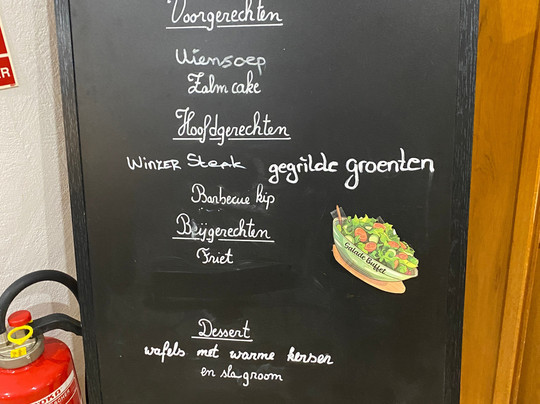 Voorgerechten
Uiensoep
Zalm cake
Hoofdgerechten
Winzer Steak gegrilde groenten
Barbecue kip
Beijgerechten
Friet
Salade Buffet
Dessert
wafels met warme kersen
en slagroom